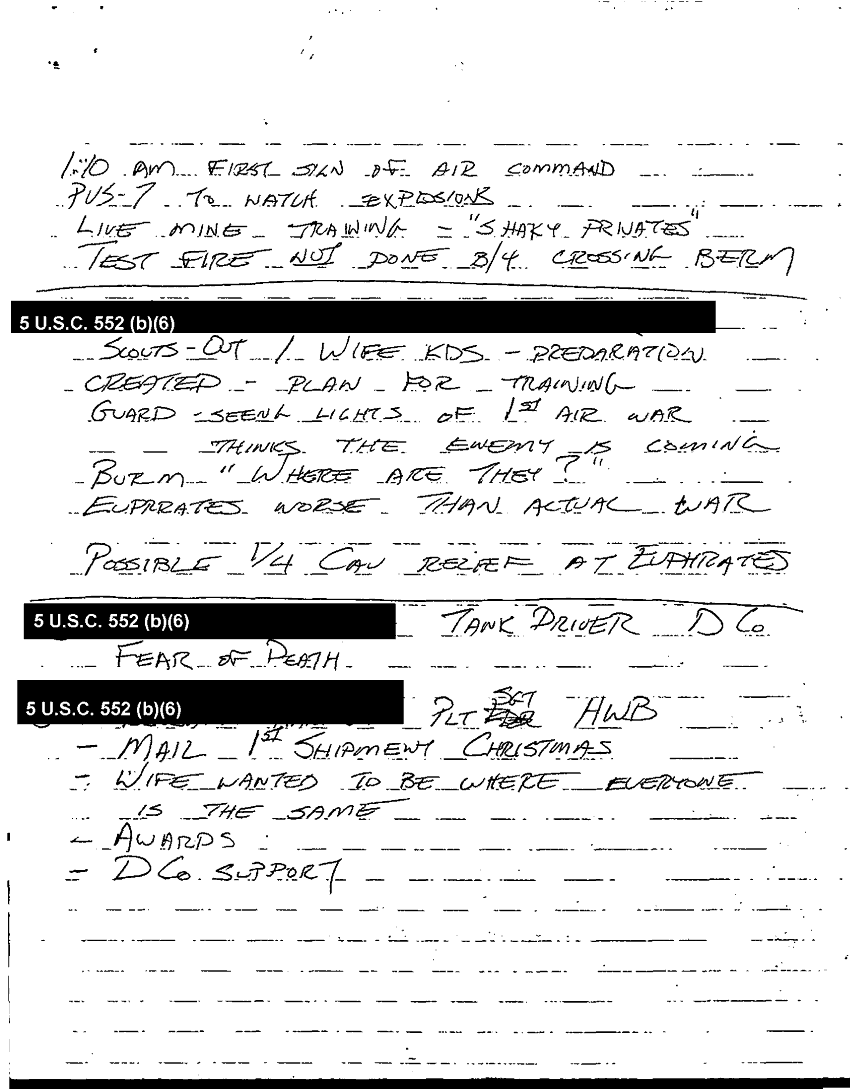 1:10 AM FIRST SIGN OF AIR COMMAND
PVS-7 TO WATCH EXPLOSIONS
LIVE MINE TRAINING - "SHAKY PRIVATES"
TEST FIRE NOT DONE B/4 CROSSING BERM
5 U.S.C. 552 (b)(6)
SCOUTS-OUT / WIFE KDS - PREPARATION
CREATED - PLAN FOR TRAINING
GUARD - SEENG LIGHTS OF 1ST AIR WAR
THINKS THE ENEMY IS COMING
BURM "WHERE ARE THEY?"
EUPRRATES WORSE THAN ACTUAL WAR
POSSIBLE 1/4 CAV RELIEF AT EUPHRATES
5 U.S.C. 552 (b)(6) TANK DRIVER D CO
FEAR OF DEATH
5 U.S.C. 552 (b)(6) PLT SGT HWB
- MAIL 1ST SHIPMENT CHRISTMAS
- WIFE WANTED TO BE WHERE EVERYONE
IS THE SAME
- AWARDS
- D CO. SUPPORT